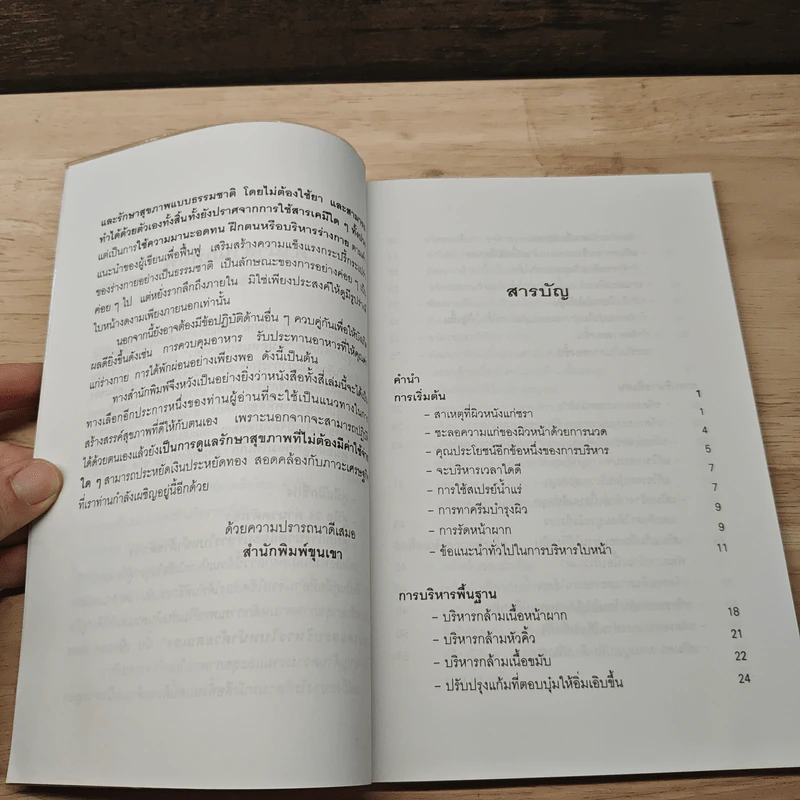 และรักษาสุขภาพแบบธรรมชาติ โดยไม่ต้องใช้ยา และสามารถ
ทำได้ด้วยตัวเองทั้งสิ้นทั้งยังปราศจากการใช้สารเคมีใด ๆ
แต่เป็นการใช้ความมานะอดทน ฝึกตนหรือบริหารร่างกาย
แนะนำของผู้เขียนเพื่อฟื้นฟู เสริมสร้างความแข็งแรงกระปรี้กระเปร่า
ของร่างกายอย่างเป็นธรรมชาติ เป็นลักษณะของการอย่างค่อย ๆ
ค่อย ๆ ไป แต่หยั่งรากลึกถึงภายใน มิใช่เพียงประสงค์ให้ดูมีรูปร่าง
ใบหน้างดงามเพียงภายนอกเท่านั้น
นอกจากนี้ยังอาจต้องมีข้อปฏิบัติด้านอื่น ๆ ควบคู่กันเพื่อให้
ผลดียิ่งขึ้นดังเช่น การควบคุมอาหาร รับประทานอาหารที่ให้
แก่ร่างกาย การได้พักผ่อนอย่างเพียงพอ ดังนี้เป็นต้น
ทางสำนักพิมพ์จึงหวังเป็นอย่างยิ่งว่าหนังสือทั้งสี่เล่มนี้จะได้
ทางเลือกอีกประการหนึ่งของท่านผู้อ่านที่จะใช้เป็นแนวทางใน
สร้างสรรค์สุขภาพที่ดีให้กับตนเอง เพราะนอกจากจะสามารถ
ได้ด้วยตนเองแล้วยังเป็นการดูแลรักษาสุขภาพที่ไม่ต้องมีค่าใช้จ่าย
ใด ๆ สามารถประหยัดเงินประหยัดทอง สอดคล้องกับภาวะเศรษฐกิจ
ที่เราท่านกำลังเผชิญอยู่นี้อีกด้วย
ด้วยความปรารถนาดีเสมอ
สำนักพิมพ์ขุนเขา
สารบัญ
คำนำ
การเริ่มต้น 1
– สาเหตุที่ผิวหนังแก่ชรา 1
– ชะลอความแก่ของผิวหน้าด้วยการนวด 4
– คุณประโยชน์อีกข้อหนึ่งของการบริหาร 5
– จะบริหารเวลาใดดี 7
– การใช้สเปรย์น้ำแร่ 7
– การทาครีมบำรุงผิว 9
– การรัดหน้าผาก 9
– ข้อแนะนำทั่วไปในการบริหารใบหน้า 11
การบริหารพื้นฐาน
– บริหารกล้ามเนื้อหน้าผาก 18
– บริหารกล้ามหัวคิ้ว 21
– บริหารกล้ามเนื้อขมับ 22
– ปรับปรุงแก้มที่ตอบบุ๋มให้อิ่มเอิบขึ้น 24